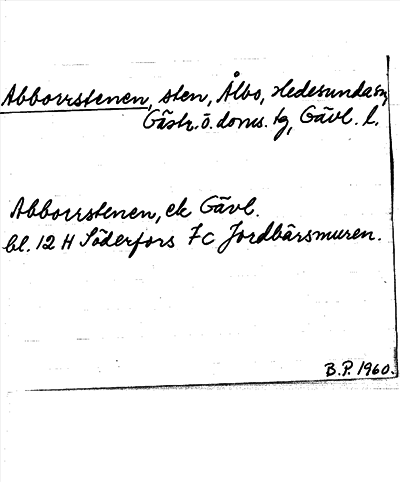 Abborrstenen, sten, Ålbo, Hedesunda sn
Gästr. ö. doms. tg, Gävl. l.
Abborrstenen, ek Gävl.
bl. 12 H Söderfors 7c Jordbärsmuren.
B.P. 1960.